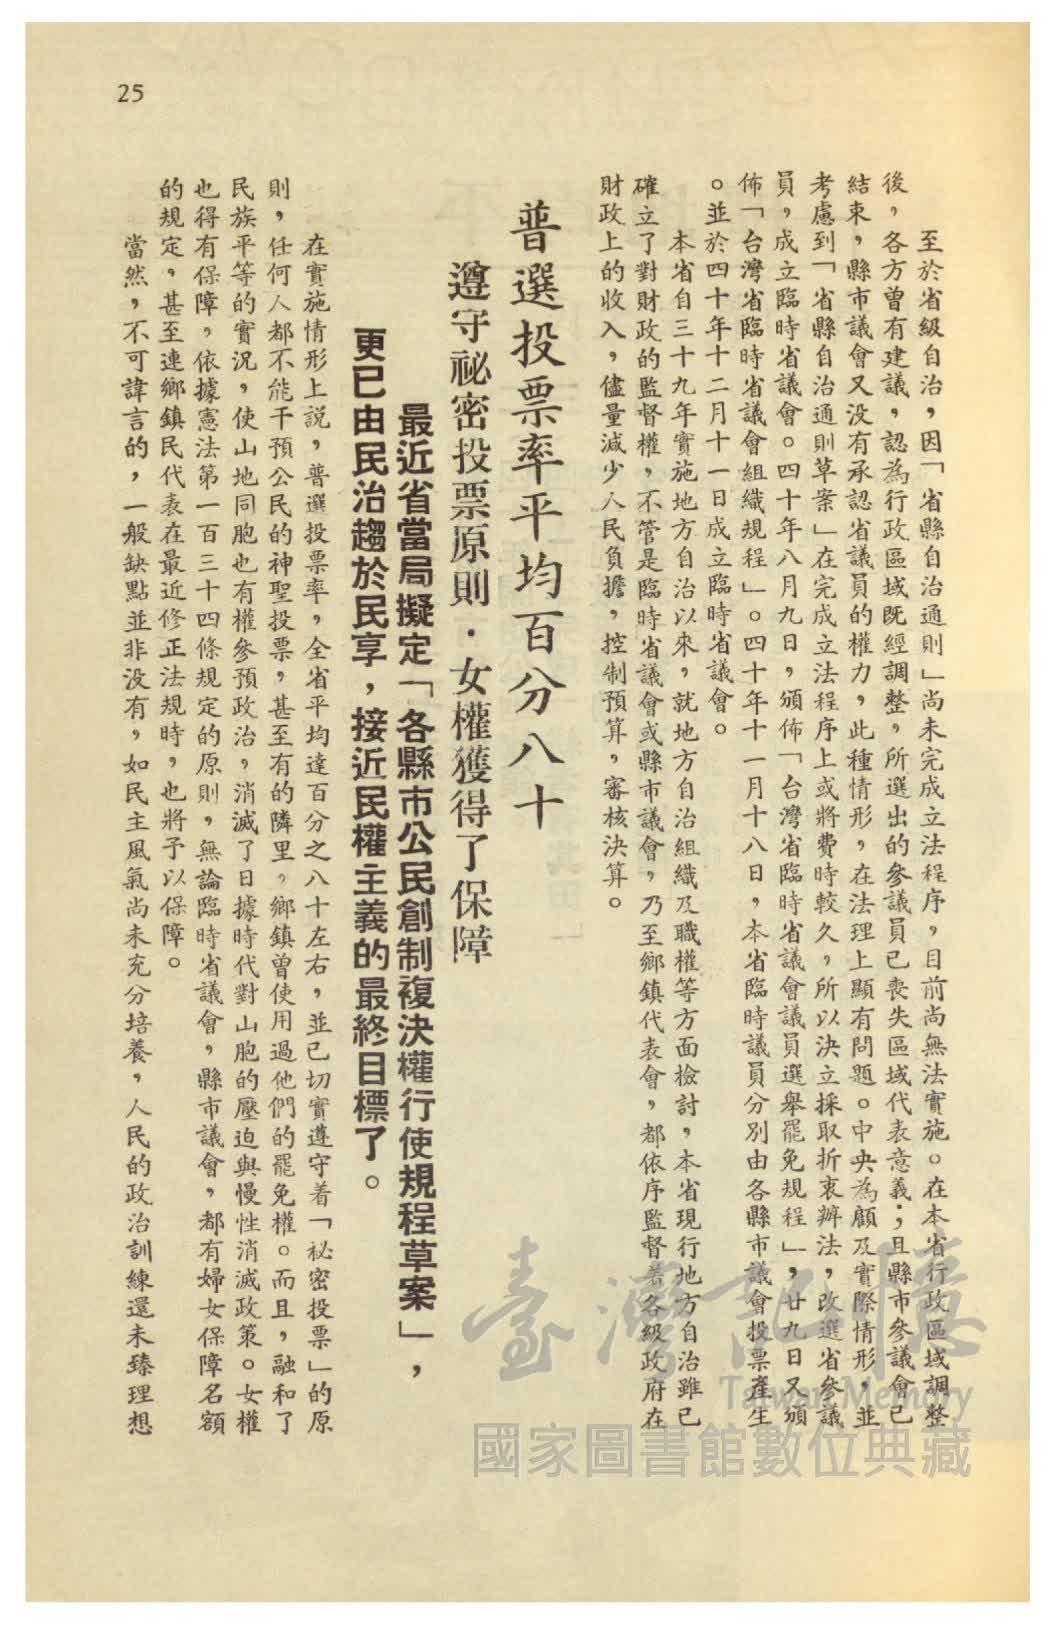 25
至於省級自治，因「省縣自治通則」尚未完成立法程序，目前尚無法實施。在本省行政區域調整
後，各方曾有建議，認為行政區域既經調整，所選出的參議員已喪失區域代表意義；且縣市參議會已
結束，縣市議會又没有承認省議員的權力，此種情形，在法理上顯有問題。中央為顧及實際情形，並
考慮到「省縣自治通則草案」在完成立法程序上或將費時較久，所以決立採取折衷辦法，改選省參議
員，成立臨時省議會。四十年八月九日，頒佈「台灣省臨時省議會議員選舉罷免規程」，廿九日又頒
佈「台灣省臨時省議會組織規程」。四十年十一月十八日，本省臨時議員分別由各縣市議會投票產生
。並於四十年十二月十一日成立臨時省議會。
本省自三十九年實施地方自治以來，就地方自治組織及職權等方面檢討，本省現行地方自治雖已
確立了對財政的監督權，不管是臨時省議會或縣市議會，乃至鄉鎮代表會，都依序監督着各級政府在
財政上的收入，儘量減少人民負擔，控制預算，審核決算。
普選投票率平均百分八十
遵守祕密投票原則·女權獲得了保障
最近省當局擬定「各縣市公民創制複決權行使規程草案」，
更已由民治趨於民享，接近民權主義的最終目標了。
在實施情形上説，普選投票率，全省平均達百分之八十左右，並已切實遵守着「祕密投票」的原
則，任何人都不能干預公民的神聖投票，甚至有的隣里，鄉鎮曾使用過他們的罷免權。而且，融和了
民族平等的實況，使山地同胞也有權參預政治，消滅了日據時代對山胞的壓迫與慢性消滅政策。女權
也得有保障，依據憲法第一百三十四條規定的原則，無論臨時省議會，縣市議會，都有婦女保障名額
的規定，甚至連鄉鎮民代表在最近修正法規時，也將予以保障。
當然，不可諱言的，一般缺點並非没有，如民主風氣尚未充分培養，人民的政治訓練還未臻理想
臺灣記憶
Taiwan Memory
國家圖書館數位典藏